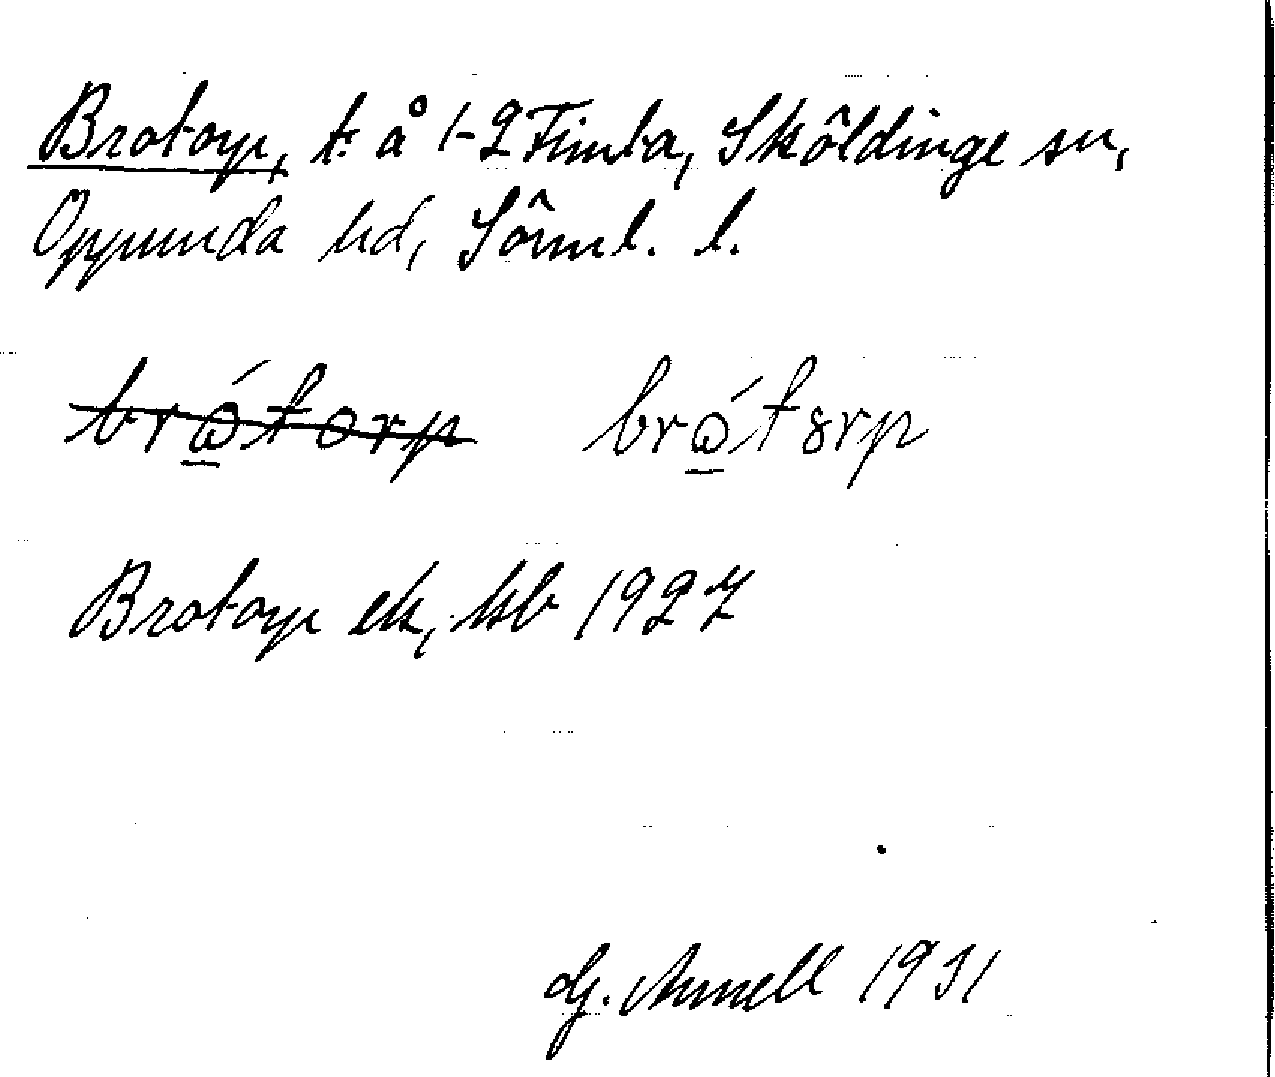 Brotorp, t. å 1-2 Fimta, Sköldinge sn,
Oppunda hd, Sörml. l.
brώ̲torp brώ̲t8rp
Brotorp ek, kb 1927
G. Annell 1931